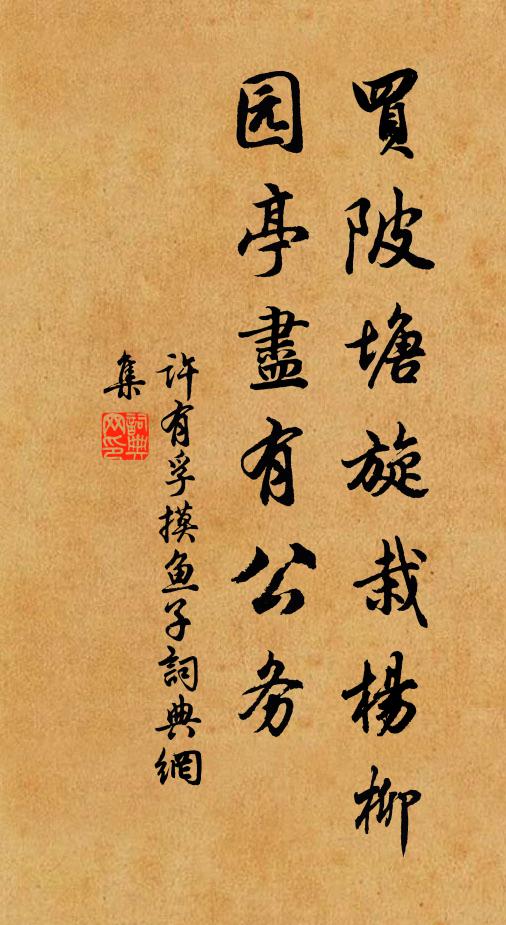 買陂塘旋栽楊柳
园亭盡有公务
许有孚摸鱼子詞典網
集
詞典网印